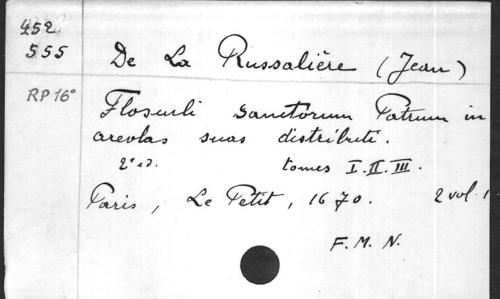 452
555
De La Russalière (Jean)
RP 16°
Flosculi sanctorum Patrum in
areolas suas distributi.
2e éd. tomes I.II.III.
Paris, Le Petit, 1670. 2 vol.
F.M.N.